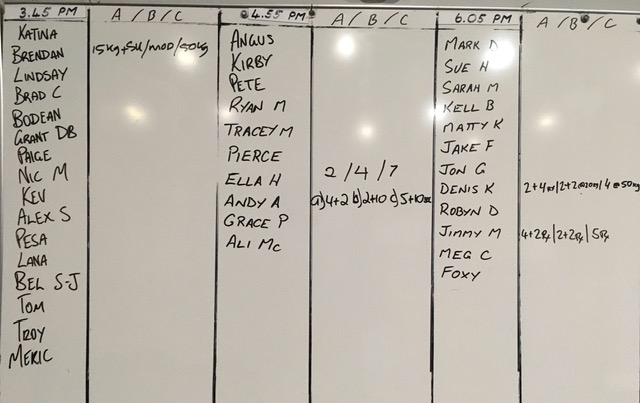 3.45 PM
A / B / C
KATINA
BRENDAN 15kg+SU/MOD/50kg
LINDSAY
BRAD C
BODEAN
GRANT DB
PAIGE
NIC M
KEV
ALEX S
PESA
LANA
BEL S-J
TOM
TROY
MERIC
4.55 PM
A / B / C
ANGUS
KIRBY
PETE
RYAN M
TRACEY M
PIERCE
ELLA H 2 / 4 / 7
ANDY A a)4+2 b)2+10 c)5+10
GRACE P
ALI MC
6.05 PM
A / B / C
MARK D
SUE H
SARAH M
KELL B
MATTY K
JAKE F
JON G
DENIS K 2+4 /2+2 /4@50kg
ROBYN D
JIMMY M 4+2Rx/2+2Rx/5Rx
MEG C
FOXY